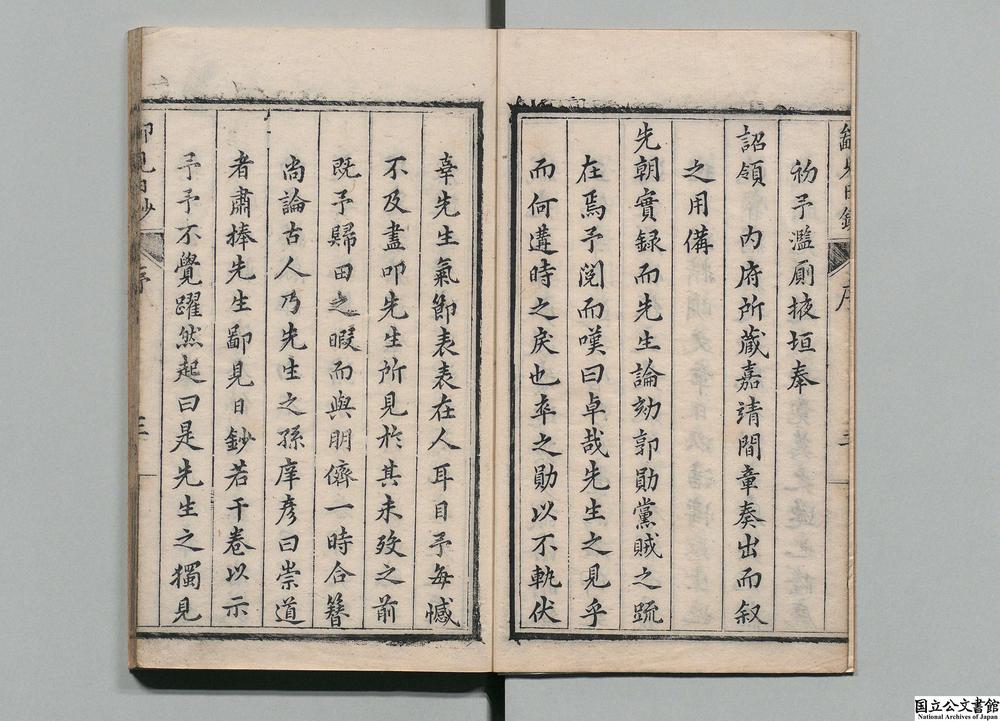 初予濫厠掖垣奉
詔領 內府所藏嘉靖間章奏出而叙
之用備
先朝實録而先生論劾郭勛黨賊之疏
在焉予閲而嘆曰卓哉先生之見乎
而何遘時之戾也卒之勛以不軌伏
辜先生氣節表表在人耳目予每憾
不及盡叩先生所見於其未歿之前
既予歸田之暇而與朋儕一時合簪
尚論古人乃先生之孫庠彥曰崇道
者肅捧先生鄙見日鈔若干卷以示
予予不覺躍然起曰是先生之獨見
序
三
国立公文書館
National Archives of Japan